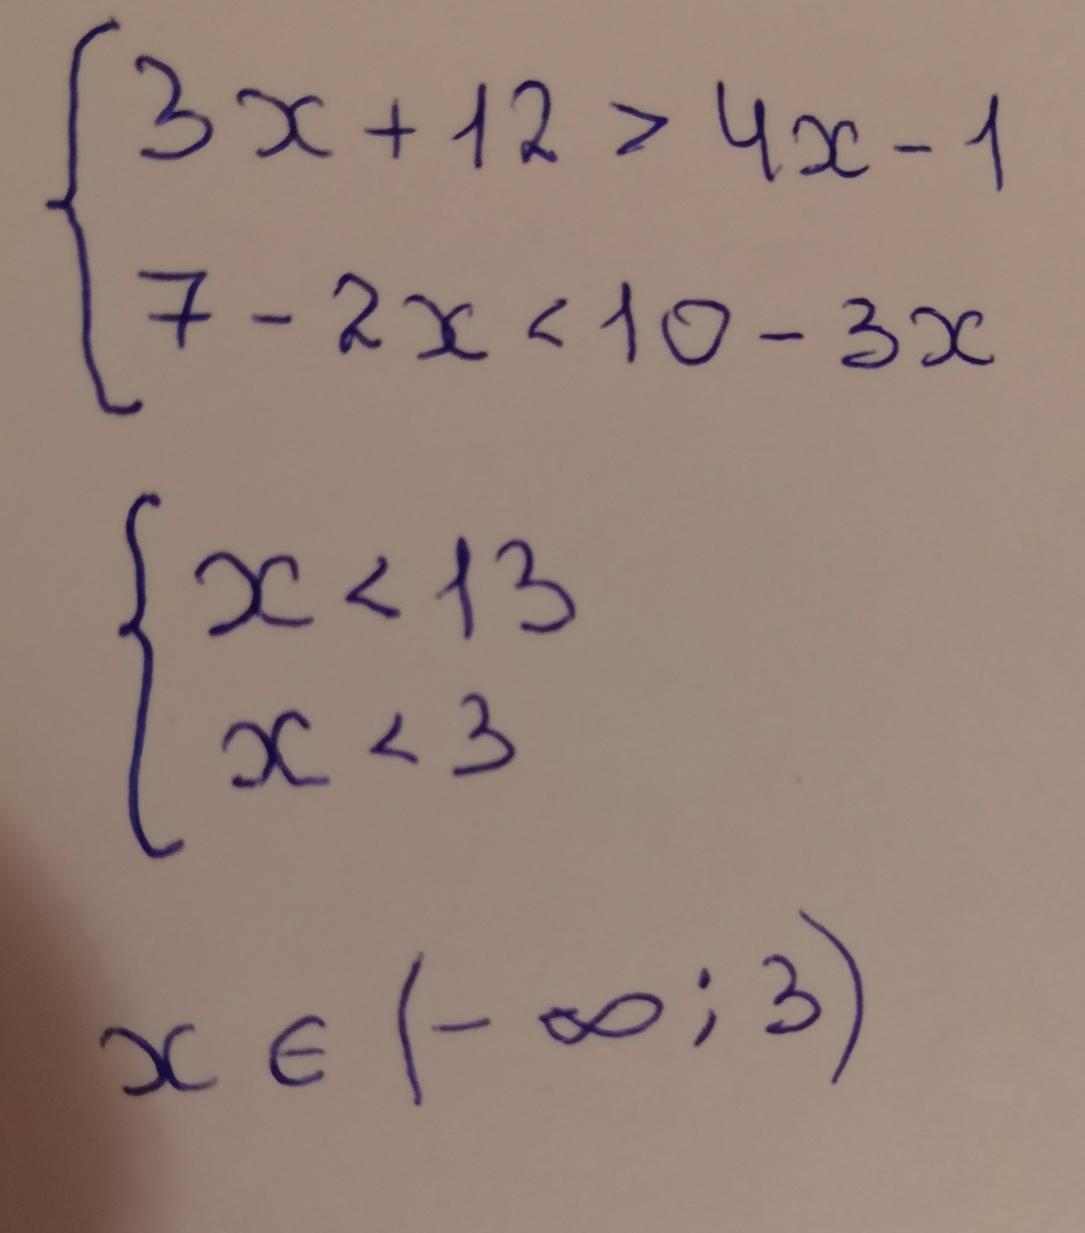 3x + 12 > 4x - 1
7 - 2x < 10 - 3x
x < 13
x < 3
x ∈ (- ∞; 3)